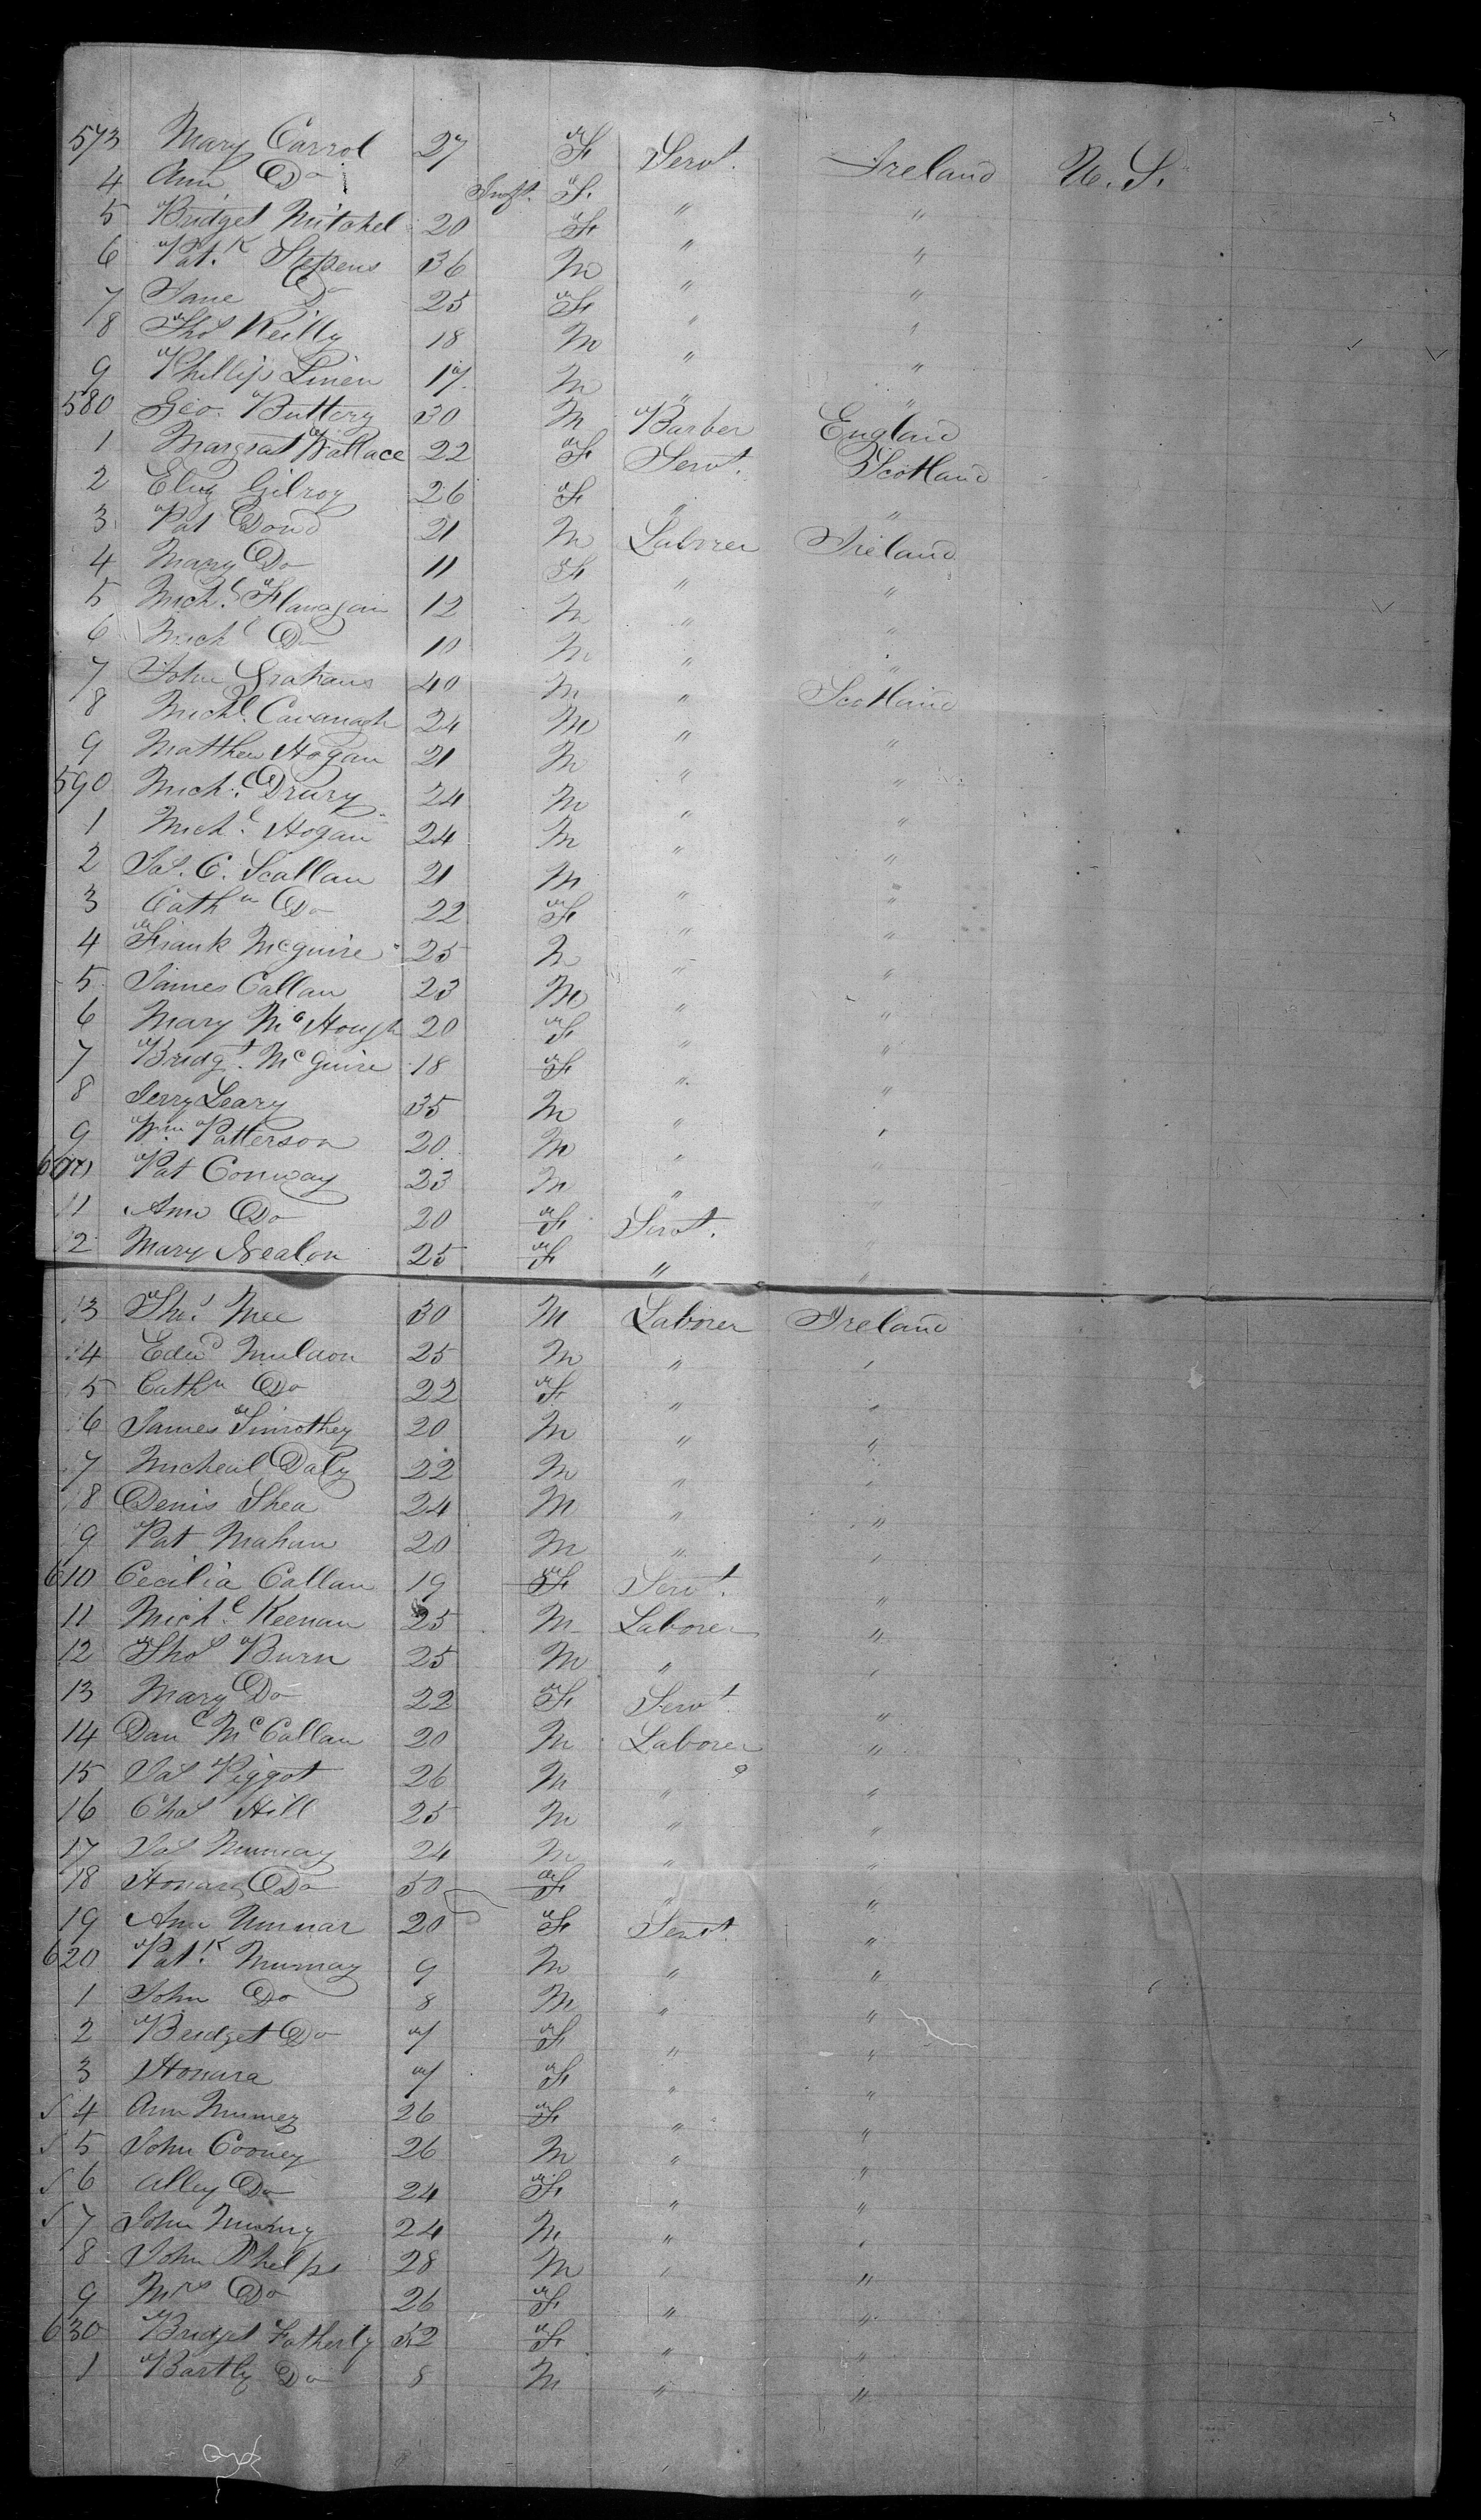 573 Mary Carrol 27 F Servt. Ireland U. S.
4 Ann Do Inft. F " "
5 Bridget Mitchel 20 F " "
6 Patk Stepens 36 M " "
7 Jane Do 25 F " "
8 Thos Reilly 18 M " "
9 Phillip Linen 17 M " "
580 Geo. Buttery 30 M Barber England
1 Margrat Wallace 22 F Servt. Scotland
2 Eliz Gilroy 26 F " "
3 Pat Dowd 21 M Laborer Ireland
4 Mary Do 11 F " "
5 Michl Flanagan 12 M " "
6 Michl Do 10 M " "
7 John Grahams 40 M " Scotland
8 Michl. Cavanagh 24 M " "
9 Matthew Hogan 21 M " "
590 Mich. Drury 24 M " "
1 Michl. Hogan 24 M " "
2 Jas. C. Scallan 21 M " "
3 Cathn Do 22 F " "
4 Frank McGuire 25 M " "
5 James Callan 23 M " "
6 Mary McHough 20 F " "
7 Bridgt. McGuire 18 F " "
8 Jerry Leary 35 M " "
9 Wm Patterson 20 M " "
600 Pat Conway 23 M "
1 Ann Do 20 F Servt.
2 Mary Nealon 25 F " "
3 Thos. Mee 30 M Laborer Ireland
4 Edwd Muldoon 25 M " "
5 Cathn Do 22 F " "
6 James Timothey 20 M " "
7 Micheal Daly 22 M " "
8 Denis Shea 24 M " "
9 Pat Mahan 20 M " "
610 Cecilia Callan 19 F Servt. "
11 Michl. Keenan 25 M Laborer "
12 Thos Burn 25 M " "
13 Mary Do 22 F Servt "
14 Danl McCallan 20 M Laborer "
15 Jas Piggot 26 M " "
16 Chas Hill 25 M " "
17 Jas Murray 24 M " "
18 Honara Do 50 F " "
19 Ann 20 F Servt. "
620 Patk. Murray 9 M " "
1 John Do 8 M " "
2 Bridget Do 7 F " "
3 Honara 7 F " "
4 Ann 26 F " "
5 John Cooney 26 M " "
6 Alley Do 24 F " "
7 John 24 M " "
8 John Phelps 28 M " "
9 Mrs Do 26 F " "
630 Bridget Fatherly 32 F " "
1 Bartly Do 8 M " "